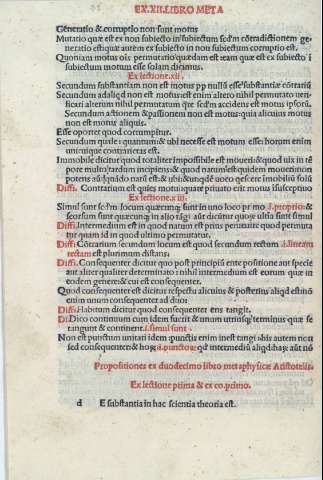 EX.XII.LIBRO META
Generatio & corruptio non sunt motus
Mutatio quæ est ex non subiecto in subiectum scd'm cõtradictionem ge
neratio est: quæ autem ex subiecto in non subiectum corruptio est.
Quoniam motus ois permutatio quædam est: eam quæ est ex subiecto i
subiectum motum esse solam dicimus.
Ex lectione.xii.
Secundum substantiam non est motus: pp nullã esse substantiæ cõtrariũ
Secundum ad aliqd non est motus: est enim altero nihil permutato veri
ficari alterum nihil permutatum: qre scd'm accidens est motus ipsorũ.
Secundum actionem & passionem non est motus: quia alicuius motus
non est motus aliquis.
Esse oportet quod corrumpitur.
Secundum quale: quantum & ubi necesse est motum esse: horum enim
unicuique contrarietas est.
Immobile dicitur quod totaliter impossibile est moueri: & quod uix in tẽ
pore multo: tardum incipiens: & quod natum est quidem moueri: non
potens aũt quãdo natũ est: & ubi: & unquã uoco qescere immobiliũ solũ
Diffi. Contrarium est quies motui: quare priuatio erit motus i susceptiuo
Ex lectione.xiii.
Simul sunt scd'm locum quæcunq; sunt in uno loco primo .i. proprio: &
seorsum sunt quæcunq; in alio: tãgi aũt dicitur quoꝝ ultia sunt simul
Diffi. Intermedium est in quod natum est prius peruenire quod permuta
tur: quam id in quod ultimo permutatur.
Diffi. Cõtrarium secundum locum est quod secundum rectam .i. lineam
rectam est plurimum distans;
Diffi. Consequenter dicitur quo post principiũ ente positione aut specie
aut aliter qualiter determinato: nihil intermedium est eorum quæ in
eodem genere: & cui est consequenter.
Quod consequenter est dicitur respectu alicuius & posterius aliqd est: nõ
enim unum consequenter ad duo:
Diffi. Habitum dicitur quod consequenter ens tangit.
Di. Dico continuum cum idem fuerit & unum utriusq; terminus quæ se
tangunt & continent .i. simul sunt.
Non est punctum unitati idem: punctis enim inest tangi: nõis autem non
sed consequenter: & hoꝝ .s. punctoꝝ qdẽ intermediũ aliqd: haꝝ aũt nõ
Propositiones ex duodecimo libro metaphysicæ Aristotelis.
Ex lectione prima & ex co.primo.
d E substantia in hac scientia theoria est.